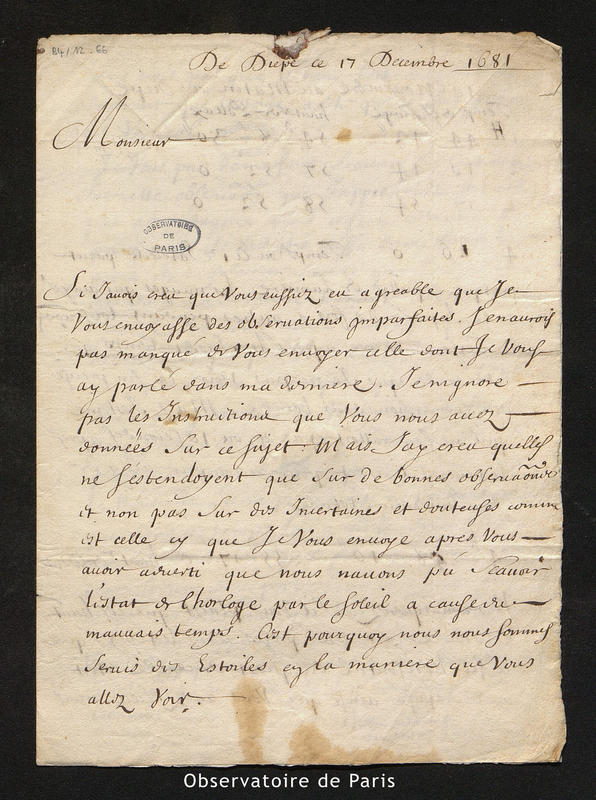 B4/12. 66
De Diepe ce 17 Decembre 1681
Monsieur
OBSERVATOIRE
DE
PARIS
Si J'avois creu que Vous eussiez eu agreable que Je
Vous envoyasse des observations Imparfaites. Je n'aurois
pas manqué de Vous envoyer celle dont Je Vous
ay parlé dans ma derniere. Je n'ignore
pas les Instructions que Vous nous avez
donnéës sur ce sujet. Mais J'ay creu quelles
ne s'estendoyent que sur de bonnes observaõns
et non pas sur des Incertaines et douteuses comme
est celle cy que Je Vous envoye apres Vous
avoir adverti que nous n'avons pû Scavoir
l'estat de l'horloge par le Soleil a cause du
mauvais temps. C'est pourquoy nous nous sommes
servis des Estoiles en la maniere que Vous
allez Voir.
Observatoire de Paris